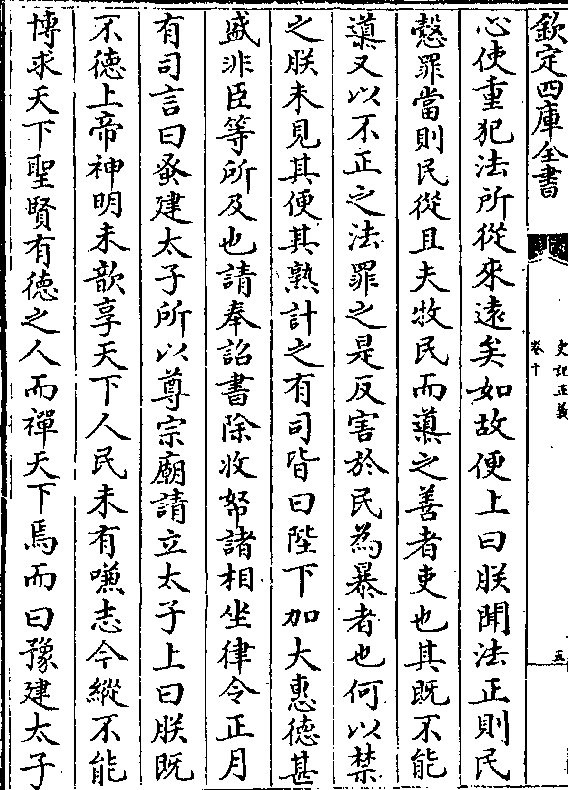 欽定四庫全書
史記正義
卷十
五
心使重犯法所從來逺矣如故便上曰朕聞法正則民
慤罪當則民從且夫牧民而𨗳之善者吏也其既不能
𨗳又以不正之法罪之是反害於民為暴者也何以禁
之朕未見其便其熟計之有司皆曰陛下加大惠德甚
盛非臣等所及也請奉詔書除收帑諸相坐律令正月
有司言曰蚤建太子所以尊宗廟請立太子上曰朕既
不德上帝神明未歆享天下人民未有嗛志今縱不能
博求天下聖賢有德之人而禪天下焉而曰豫建太子